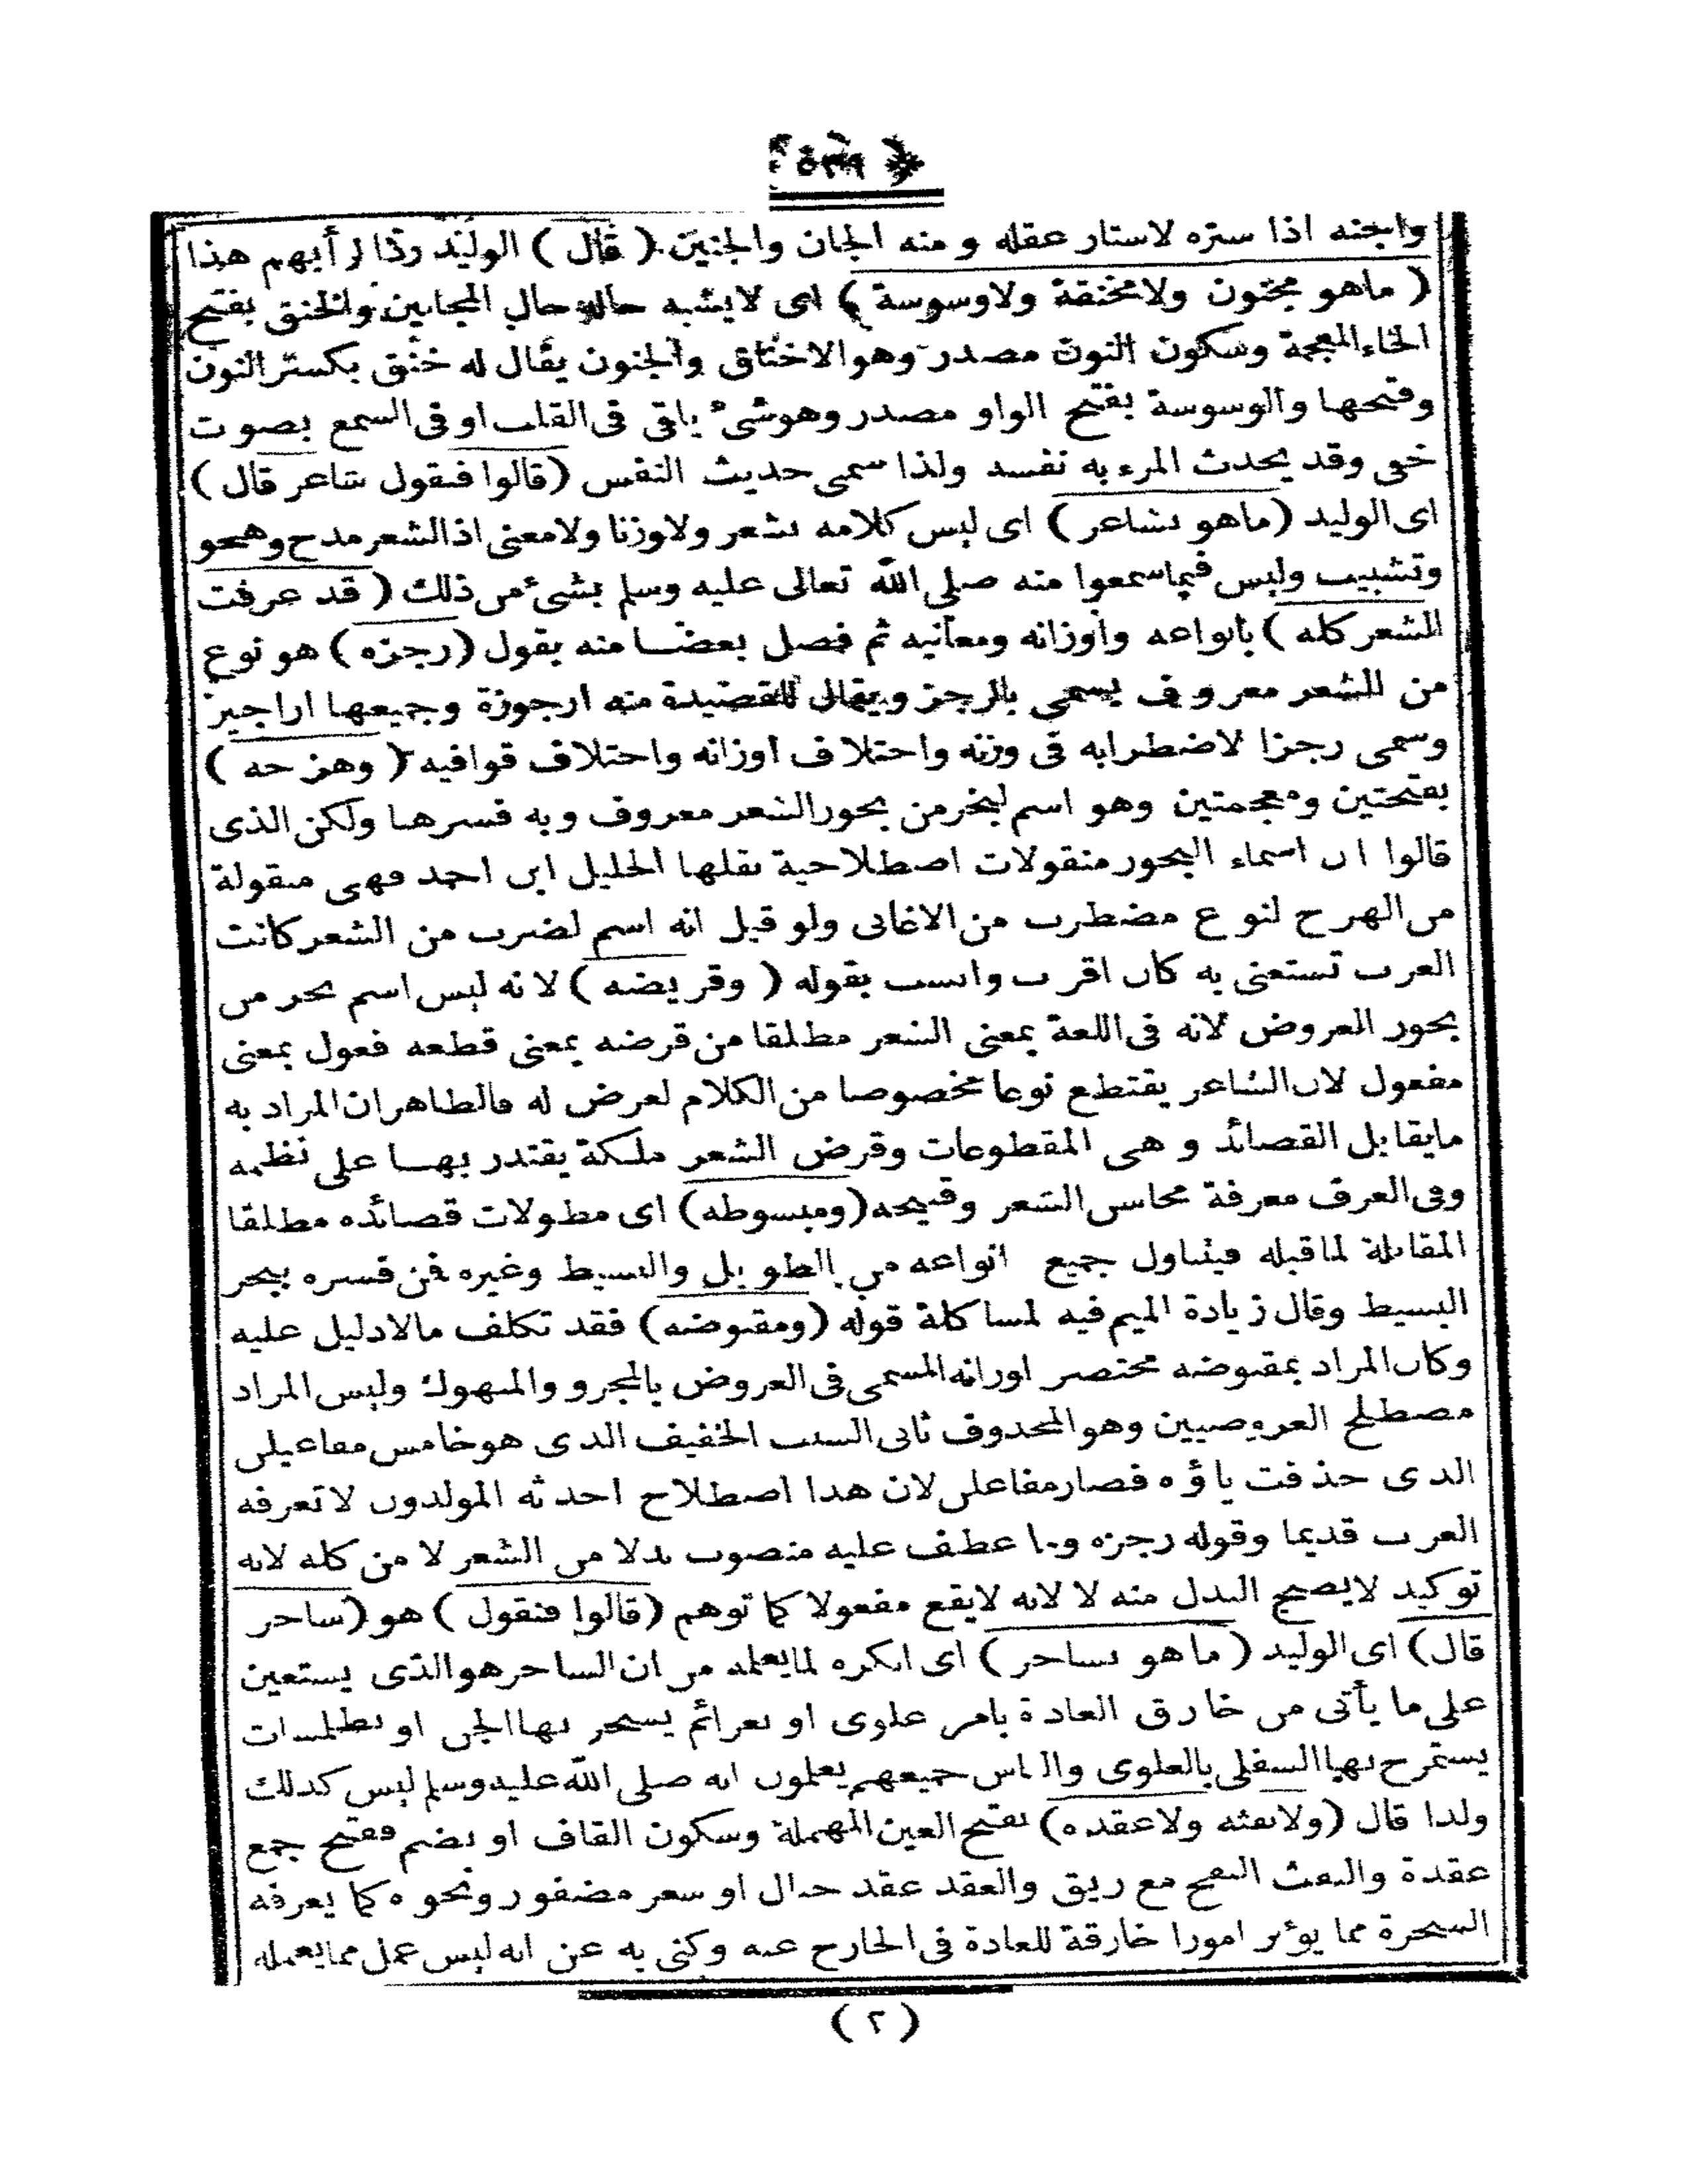 ﴿ ٥٣٩ ﴾
واجنه اذا ستره لاستار عقله و منه الجان والجنين ( قال ) الوليد ردا لرأيهم هذا
( ماهو بمجنون ولا مخنقة ولاوسوسة ) اى لايشبه حاله حال المجانين والخنق بفتح
الخاء المعجمة وسكون النون مصدر وهو الاختناق والجنون يقال له خنق بكسر النون
وفتحها والوسوسة بفتح الواو مصدر وهوشئ يلقى فى القلب او فى السمع بصوت
خفى وقد يحدث المرء به نفسه ولذا سمى حديث النفس (قالوا فنقول شاعر قال )
اى الوليد (ماهو بشاعر ) اى ليس كلامه بشعر ولاوزنا ولامعنى اذ الشعر مدح وهجو
وتشبيب وليس فيما سمعوا منه صلى الله تعالى عليه وسلم بشئ من ذلك ( قد عرفت
الشعر كله ) بانواعه وأوزانه ومعانيه ثم فصل بعضا منه بقول (رجزه ) هو نوع
من الشعر معروف يسمى بالرجز ويقال للقصيدة منه ارجوزة وجميعها اراجيز
وسمى رجزا لاضطرابه فى وزنه واختلاف اوزانه واختلاف قوافيه ( وهزجه )
بفتحتين ومعجمتين وهو اسم لبحر من بحور الشعر معروف وبه فسرها ولكن الذى
قالوا ان اسماء البحور منقولات اصطلاحية نقلها الخليل ابن احمد فهى منقولة
من الهزج لنوع مضطرب من الاغانى ولو قيل انه اسم لضرب من الشعر كانت
العرب تستعنى به كان اقرب وانسب بقوله ( وقريضه ) لانه ليس اسم بحر من
بحور العروض لانه فى اللغة بمعنى الشعر مطلقا من قرضه بمعنى قطعه فعول بمعنى
مفعول لان الشاعر يقتطع نوعا مخصوصا من الكلام لعرض له فالظاهر ان المراد به
مايقابل القصائد و هى المقطوعات وقرض الشعر ملكة يقتدر بها على نظمه
وفى العرف معرفة محاسن الشعر وقبيحه (ومبسوطه) اى مطولات قصائده مطلقا
المقابلة لما قبله فيتناول جميع انواعه من الطويل والبسيط وغيره فمن فسره ببحر
البسيط وقال زيادة الميم فيه لمشاكلة قوله (ومقبوضه) فقد تكلف مالادليل عليه
وكان المراد بمقبوضه مختصر اوزانه المسمى فى العروض بالمجزو والمنهوك وليس المراد
مصطلح العروضيين وهو المحذوف ثانى السبب الخفيف الذى هو خامس مفاعيلن
الذى حذفت ياؤه فصار مفاعلن لان هذا اصطلاح احدثه المولدون لاتعرفه
العرب قديما وقوله رجزه وما عطف عليه منصوب بدلا من الشعر لا من كله لانه
توكيد لايصح البدل منه لا لانه لايقع مفعولا كما توهم (قالوا فنقول ) هو (ساحر
قال) اى الوليد ( ماهو بساحر ) اى انكره لما يعلمه من ان الساحر هو الذى يستعين
على ما يأتى من خارق العادة بامر علوى او بعرائم يسحر بها الجن او بطلسمات
يستمزج بها السفلى بالعلوى والناس جميعهم يعلمون انه صلى الله عليه وسلم ليس كذلك
ولذا قال (ولانفثه ولاعقده) بفتح العين المهملة وسكون القاف او بضم ففتح جمع
عقدة والنفث النفخ مع ريق والعقد عقد حبال او شعر مضفور ونحوه كما يعرفه
السحرة مما يؤثر امورا خارقة للعادة فى الخارج عنه وكنى به عن انه ليس عمل مما يعمله
( ٢ )